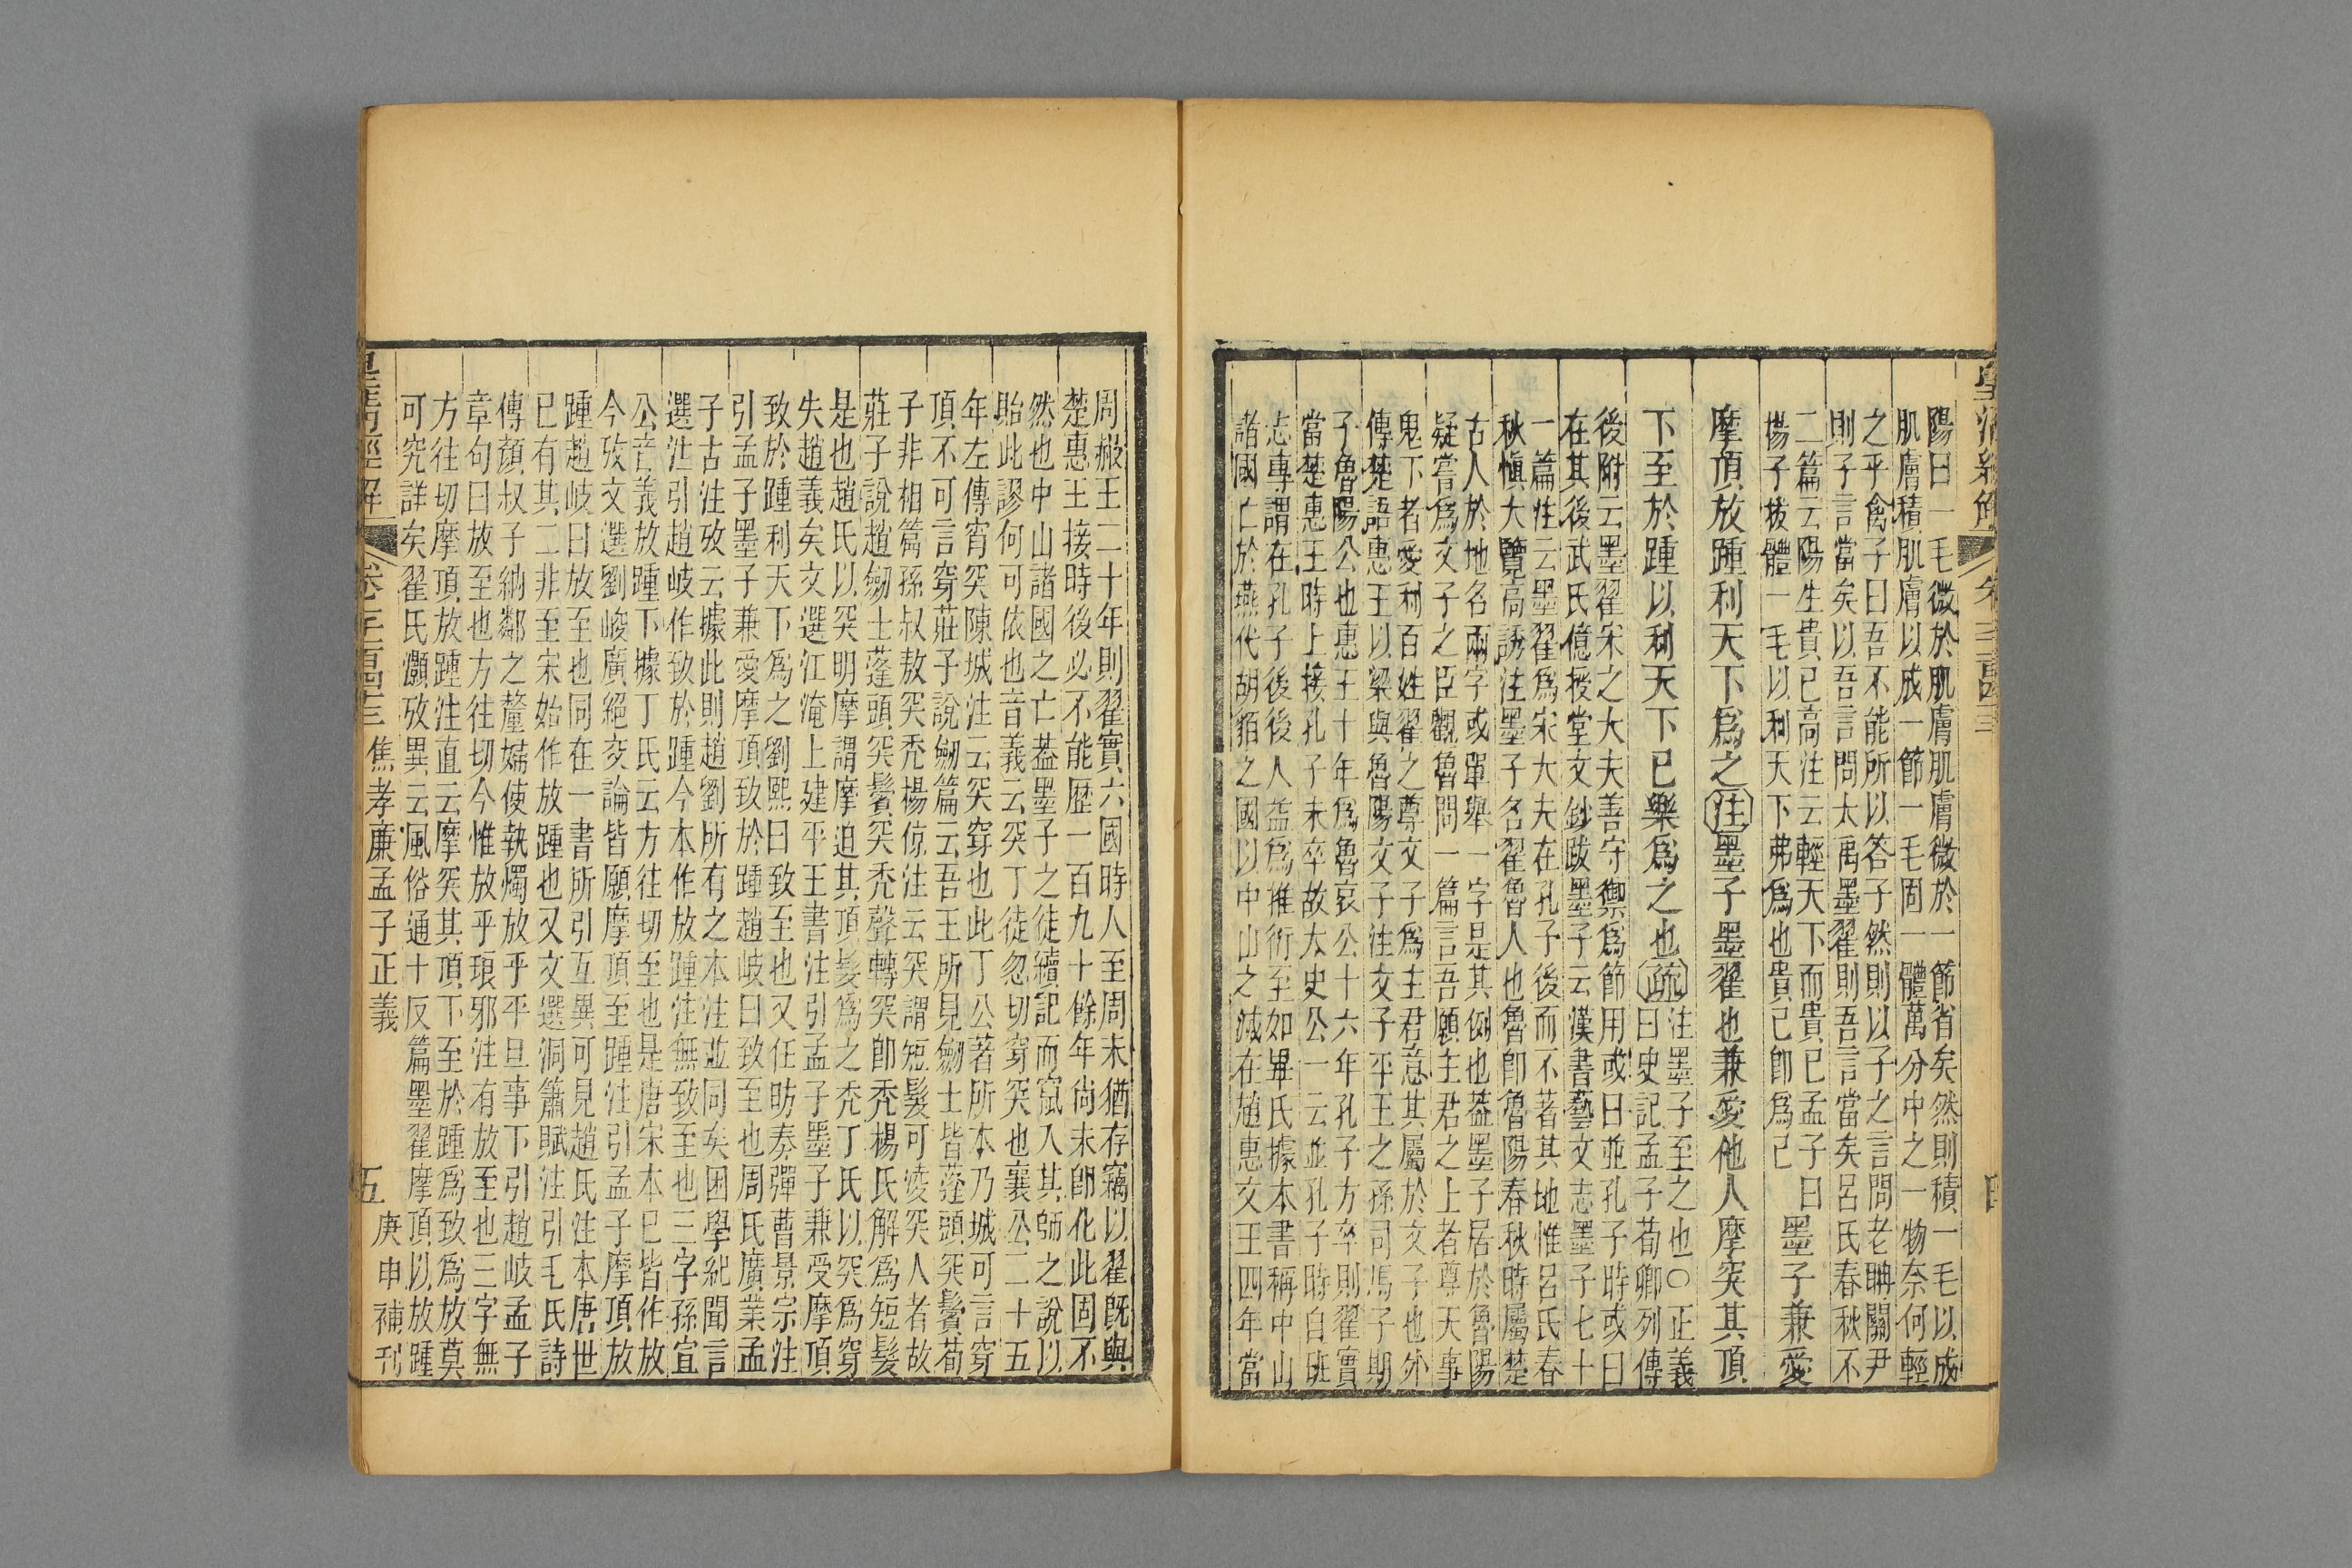 皇清經解
卷一千一百四十三
陽曰一毛微於肌膚肌膚微於一節省矣然則積一毛以成
肌膚積肌膚以成一節一毛固一體萬分中之一物奈何輕
之乎禽子曰吾不能所以答子然則以子之言問老聃關尹
則子言當矣以吾言問大禹墨翟則吾言當矣呂氏春秋不
二篇云陽生貴己高注云輕天下而貴己孟子曰
楊子拔體一毛以利天下弗爲也貴己卽爲己
墨子兼愛
摩頂放踵利天下爲之注墨子墨翟也兼愛他人摩突其頂
下至於踵以利天下己樂爲之也疏
注墨子至之也○正義
曰史記孟子荀卿列傳
後附云墨翟宋之大夫善守禦爲節用或曰並孔子時或曰
在其後武氏億授堂文鈔跋墨子云漢書藝文志墨子七十
一篇注云墨翟爲宋大夫在孔子後而不著其地惟呂氏春
秋愼大覽高誘注墨子名翟魯人也魯卽魯陽春秋時屬楚
古人於地名兩字或單舉一字是其例也葢墨子居於魯陽
疑嘗爲文子之臣觀魯問一篇言吾願主君之上者尊天事
鬼下者愛利百姓翟之尊文子爲主君意其屬於文子也外
傳楚語惠王以梁與魯陽文子注文子平王之孫司馬子期
子魯陽公也惠王十年爲魯哀公十六年孔子方卒則翟實
當楚惠王時上接孔子未卒故太史公一云並孔子時自班
志專謂在孔子後後人益爲推衍至如畢氏據本書稱中山
諸國亡於燕代胡貊之國以中山之滅在趙惠文王四年當
周赧王二十年則翟實六國時人至周末猶存竊以翟旣與
楚惠王接時後必不能歷一百九十餘年尚未卽化此固不
然也中山諸國之亡葢墨子之徒續記而竄入其師之說以
貽此謬何可依也音義云突丁徒忽切穿突也襄公二十五
年左傳宵突陳城注云突穿也此丁公著所本乃城可言穿
頂不可言穿莊子說劒篇云吾王所見劒士皆蓬頭突鬢荀
子非相篇孫叔敖突秃楊倞注云突謂短髮可凌突人者故
莊子說趙劒士蓬頭突鬢突秃聲轉突卽秃楊氏解爲短髮
是也趙氏以突明摩謂摩迫其頂髮爲之秃丁氏以突爲穿
失趙義矣文選江淹上建平王書注引孟子墨子兼受摩頂
致於踵利天下爲之劉熙曰致至也又任昉奏彈曹景宗注
引孟子墨子兼愛摩頂致於踵趙岐曰致至也周氏廣業孟
子古注攷云據此則趙劉所有之本注並同矣困學紀聞言
選注引趙岐作致於踵今本作放踵注無致至也三字孫宣
公音義放踵下據丁氏云方往切至也是唐宋本已皆作放
今攷文選劉峻廣絕交論皆願摩頂至踵注引孟子摩頂放
踵趙岐曰放至也同在一書所引互異可見趙氏注本唐世
已有其二非至宋始作放踵也又文選洞簫賦注引毛氏詩
傳顔叔子納鄰之釐嫠使執燭放乎平旦事下引趙岐孟子
章句曰放至也方往切今惟放乎琅邪注有放至也三字無
方往切摩頂放踵注直云摩突其頂下至於踵爲致爲放莫
可究詳矣翟氏灝攷異云風俗通十反篇墨翟摩頂以放踵
皇清經解
卷一千一百四十三
焦孝廉孟子正義
五
庚申補刊